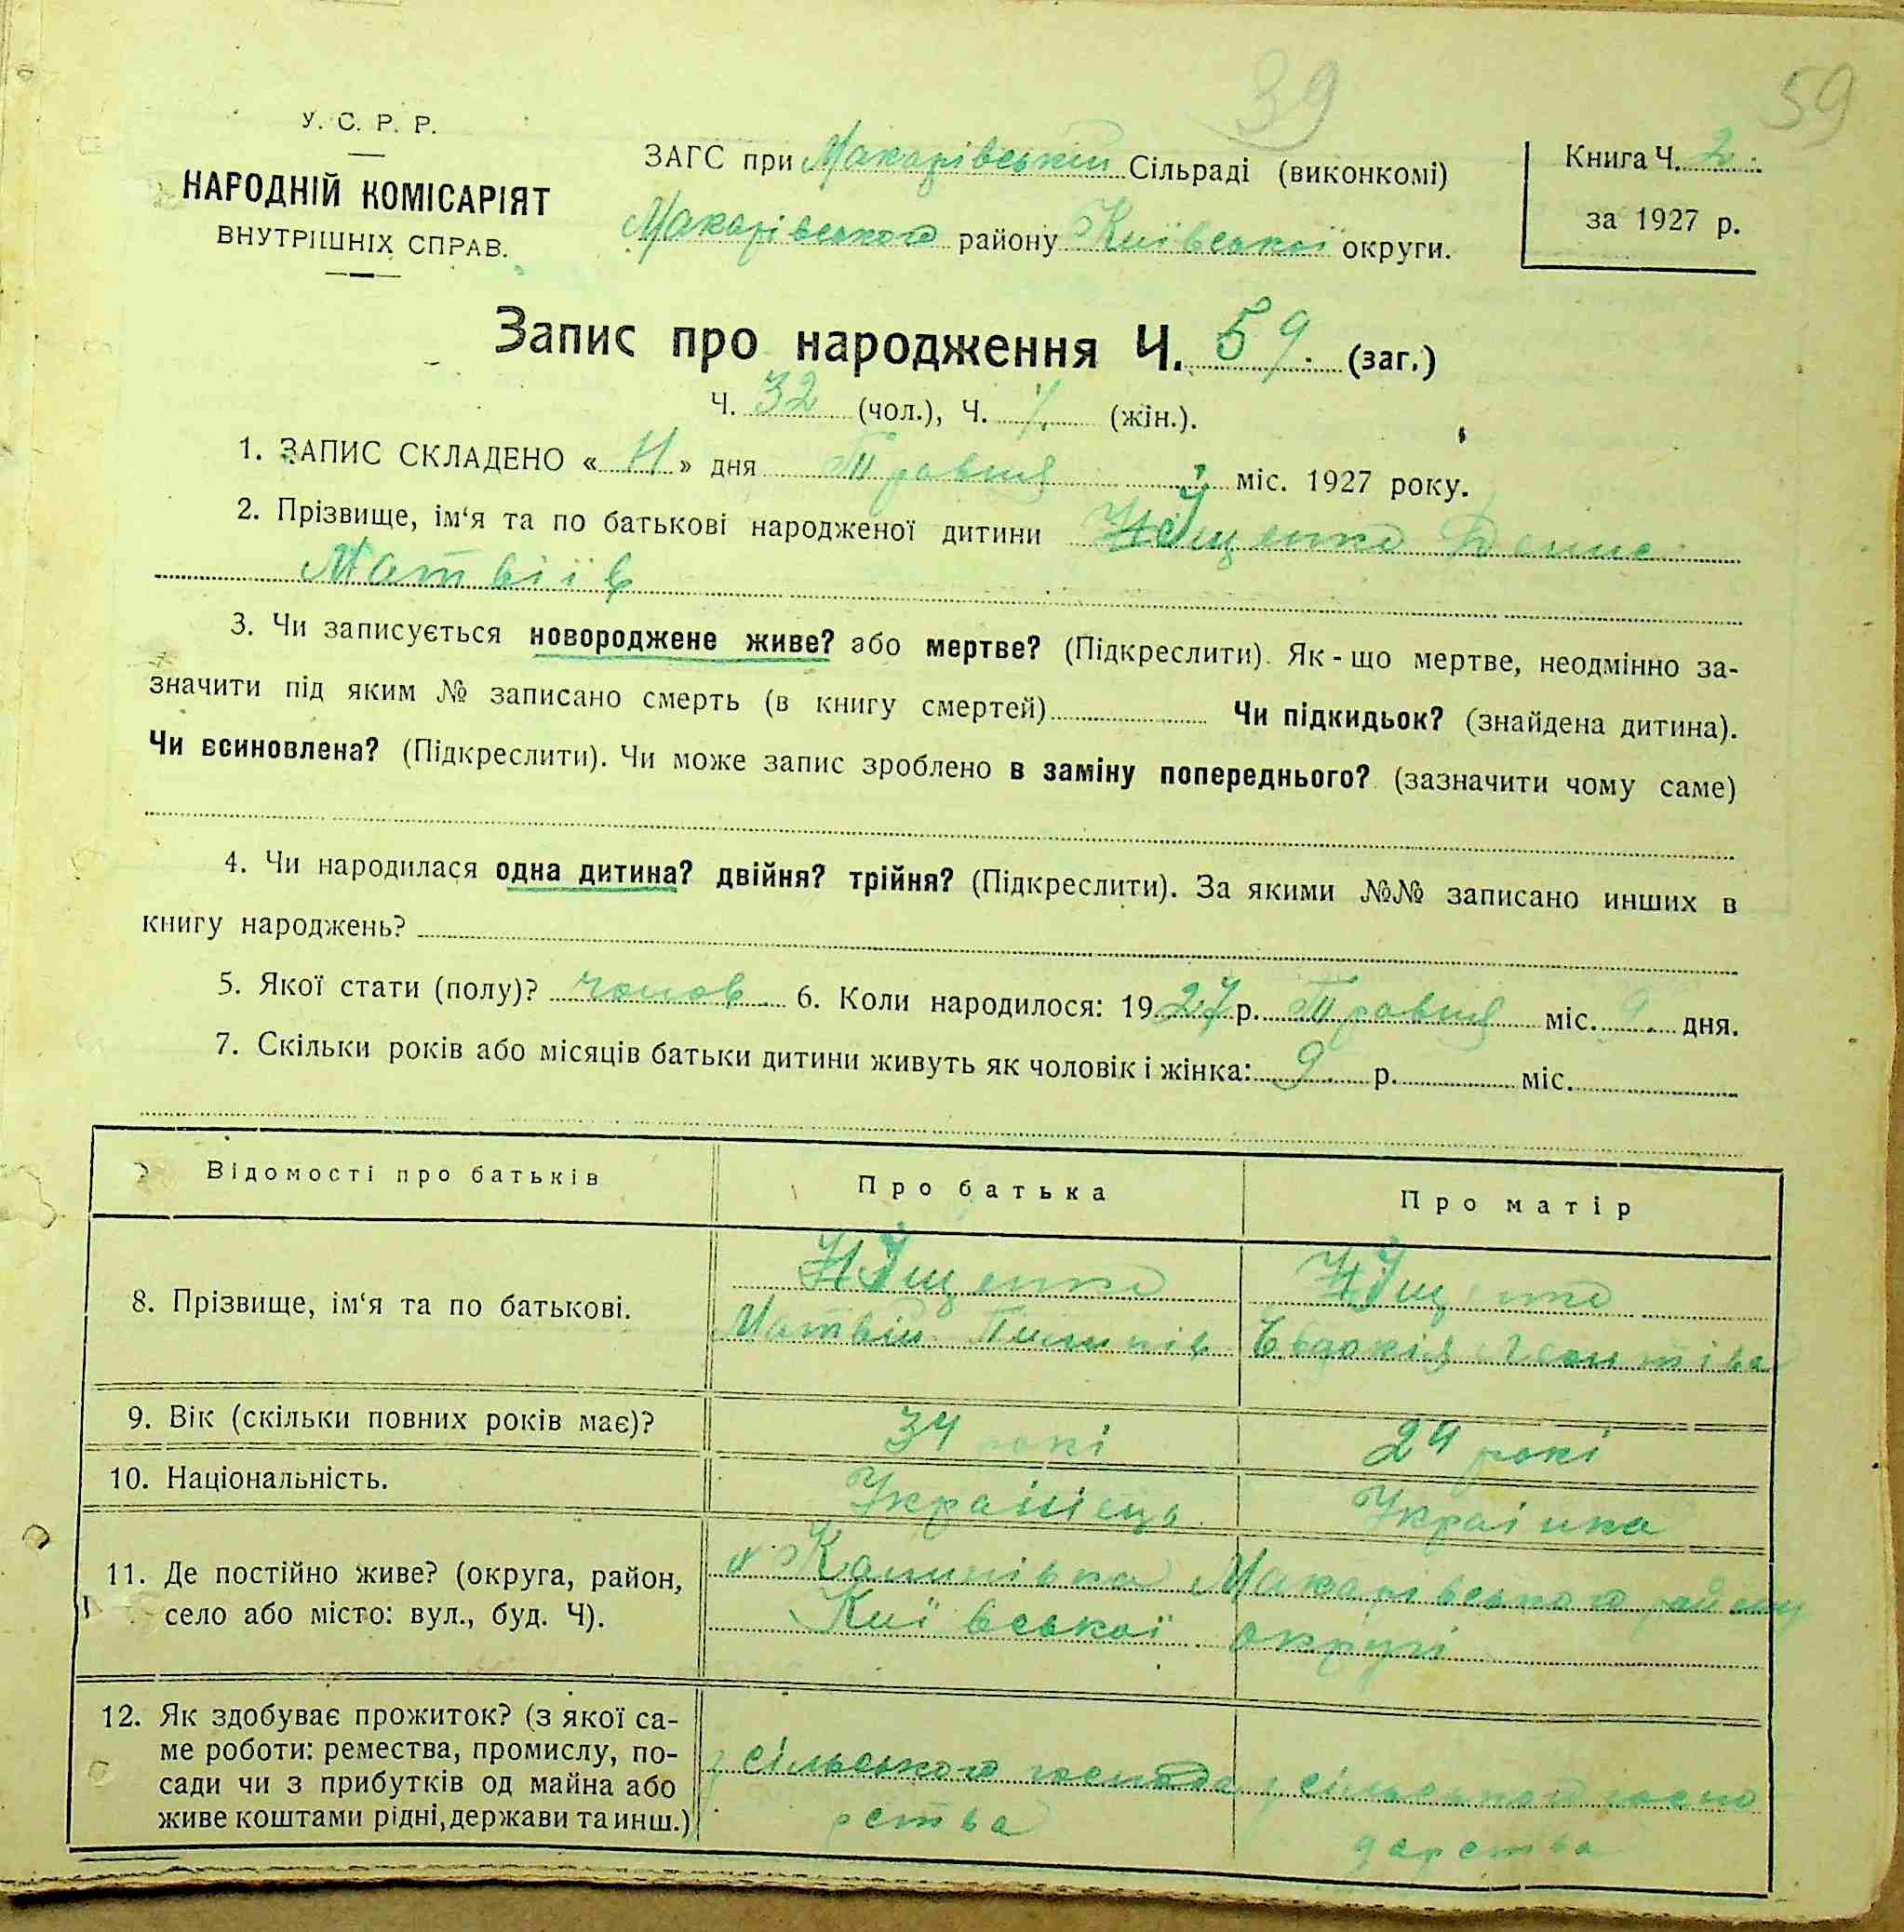 39
59
У. С. Р. Р.
НАРОДНІЙ КОМІСАРІЯТ
ВНУТРІШНІХ СПРАВ.
ЗАГС при Макарівській Сільраді (виконкомі)
Макарівського району Київської округи.
Книга Ч. 2.
за 1927 р.
Запис про народження Ч. 59. (заг.)
Ч. 32 (чол.), Ч. (жін.).
1. ЗАПИС СКЛАДЕНО « 11 » дня Травня міс. 1927 року.
2. Прізвище, ім‘я та по батькові народженої дитини Денис
Матвіїв
3. Чи записується новороджене живе? або мертве? (Підкреслити). Як-що мертве, неодмінно за-
значити під яким № записано смерть (в книгу смертей) Чи підкидьок? (знайдена дитина).
Чи всиновлена? (Підкреслити). Чи може запис зроблено в заміну попереднього? (зазначити чому саме)
4. Чи народилася одна дитина? двійня? трійня? (Підкреслити). За якими №№ записано инших в
книгу народжень?
5. Якої стати (полу)? чолов. 6. Коли народилося: 1927 р. Травня міс. 9. дня.
7. Скільки років або місяців батьки дитини живуть як чоловік і жінка: 9 р. міс.
Відомості про батьків
Про батька
Про матір
8. Прізвище, ім‘я та по батькові.
Матвій Пилипів
Євдокія Леонтіва
9. Вік (скільки повних років має)?
34 рокі
24 рокі
10. Національність.
Українець
Украінка
11. Де постійно живе? (округа, район,
село або місто: вул., буд. Ч).
Калинівка Макарівського району
Київської округі
12. Як здобуває прожиток? (з якої са-
ме роботи: ремества, промислу, по-
сади чи з прибутків од майна або
живе коштами рідні, держави та инш.)
з сільського господа
рства
з сільського госпо
дарства